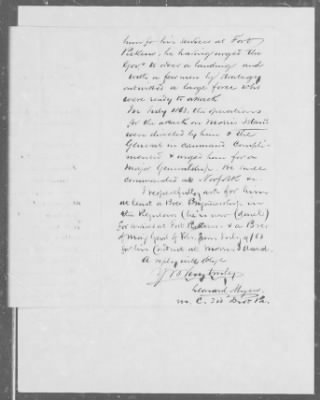 him for his services at Fort
Pickens, he having urged the
Gov.t to cover a landing and
with a few men by strategy
outwitted a large force who
were ready to attack
In July 1863, the operations
for the attack on Morris Island
were directed by him & the
General in command compli-
mented & urged him for a
Major Generalship. He since
commanded at Norfolk
I respectfully ask for him
at least a Brev Brigadiership in
the Regulars (he is now
for services at Fort Pickens & a Brev
of Maj Genl of Vols from July 1863
for his Conduct at Morris Island.
A reply will oblige
Yrs Very truly
Leonard Myers
M. C. 3d Dist Pa.